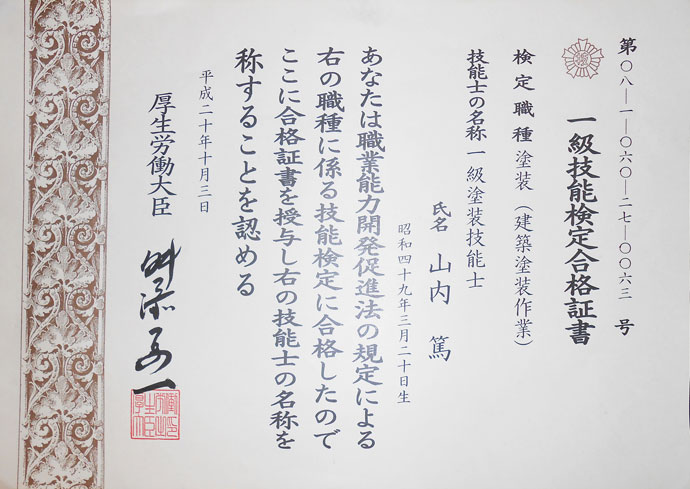 第〇八―一―〇六〇―二七―〇〇六三号
一級技能検定合格証書
検定職種 塗装(建築塗装作業)
技能士の名称 一級塗装技能士
氏名 山内 篤
昭和四十九年三月二十日生
あなたは職業能力開発促進法の規定による
右の職種に係る技能検定に合格したので
ここに合格証書を授与し右の技能士の名称を
称することを認める
平成二十年十月三日
厚生労働大臣 舛添要一